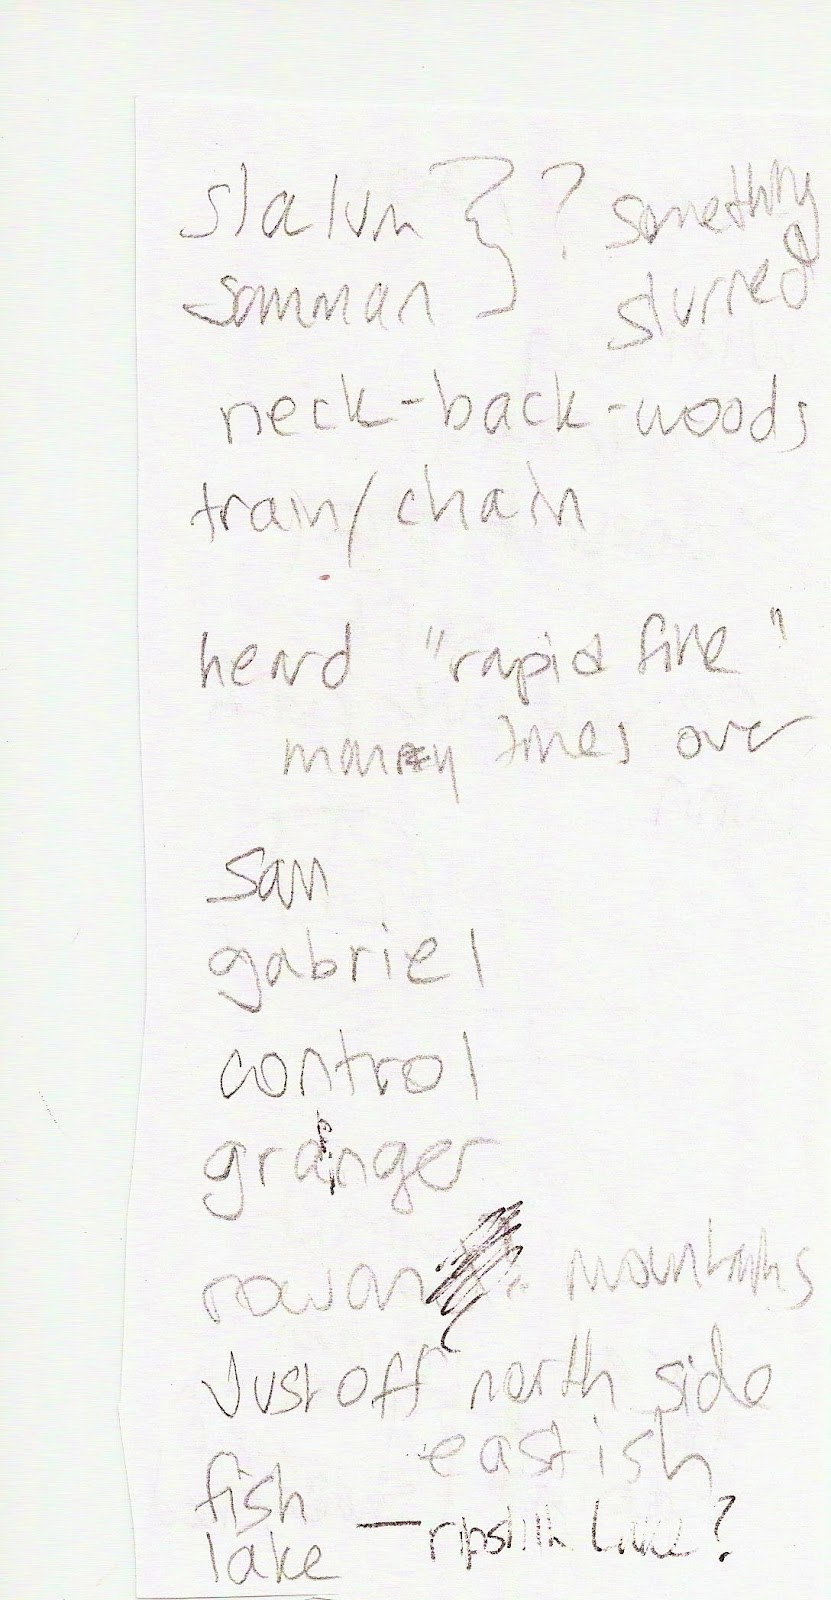 slalum } ? something
samman } slurred
neck-back-woods
train/chain
heard "rapid fire"
many times over
san
gabriel
control
granger
rowan mountains
Just off north side
eastish
fish
lake — like?